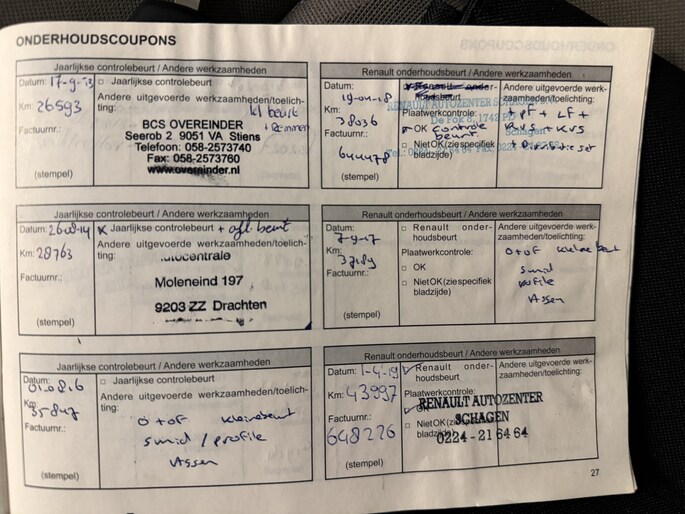 ONDERHOUDSCOUPONS
Jaarlijkse controlebeurt / Andere werkzaamheden
Datum: 17-9-13
□ Jaarlijkse controlebeurt
Km: 26593
Andere uitgevoerde werkzaamheden/toelich-
ting: kl beurt
+ remmen
Factuurnr.:
BCS OVEREINDER
Seerob 2 9051 VA Stiens
Telefoon: 058-2573740
Fax: 058-2573760
www.overeinder.nl
(stempel)
Renault onderhoudsbeurt / Andere werkzaamheden
Datum:
19-04-18
Renault onder-
houdsbeurt
Andere uitgevoerde werk-
zaamheden/toelichting:
Km:
38036
Plaatwerkcontrole:
OK controle
beurt
□ Niet OK (zie specifiek
bladzijde)
+ PF + LF +
+ Distributieset
Factuurnr.:
644478
RENAULT AUTOZENTER
De Fok 8, 1742
Schagen
(stempel)
Jaarlijkse controlebeurt / Andere werkzaamheden
Datum: 26-08-14
x Jaarlijkse controlebeurt + afl. beurt
Km: 28763
Andere uitgevoerde werkzaamheden/toelich-
ting:
Factuurnr.:
Autocentrale
Moleneind 197
9203 ZZ Drachten
(stempel)
Renault onderhoudsbeurt / Andere werkzaamheden
Datum:
7-9-17
□ Renault onder-
houdsbeurt
Andere uitgevoerde werk-
zaamheden/toelichting:
Km:
37189
Plaatwerkcontrole:
□ OK
□ Niet OK (zie specifiek
bladzijde)
O+OF kleine beurt
Smid
profile
Assen
Factuurnr.:
(stempel)
Jaarlijkse controlebeurt / Andere werkzaamheden
Datum:
□ Jaarlijkse controlebeurt
Km:
35847
Andere uitgevoerde werkzaamheden/toelich-
ting:
O+OF kleine beurt
Smid / profile
Assen
Factuurnr.:
(stempel)
Renault onderhoudsbeurt / Andere werkzaamheden
Datum: 1-4-19
Renault onder-
houdsbeurt
Andere uitgevoerde werk-
zaamheden/toelichting:
Km: 43997
Plaatwerkcontrole:
OK
□ Niet OK (zie specifiek
bladzijde)
Factuurnr.:
648226
RENAULT AUTOZENTER
SCHAGEN
0224-21 64 64
(stempel)
27